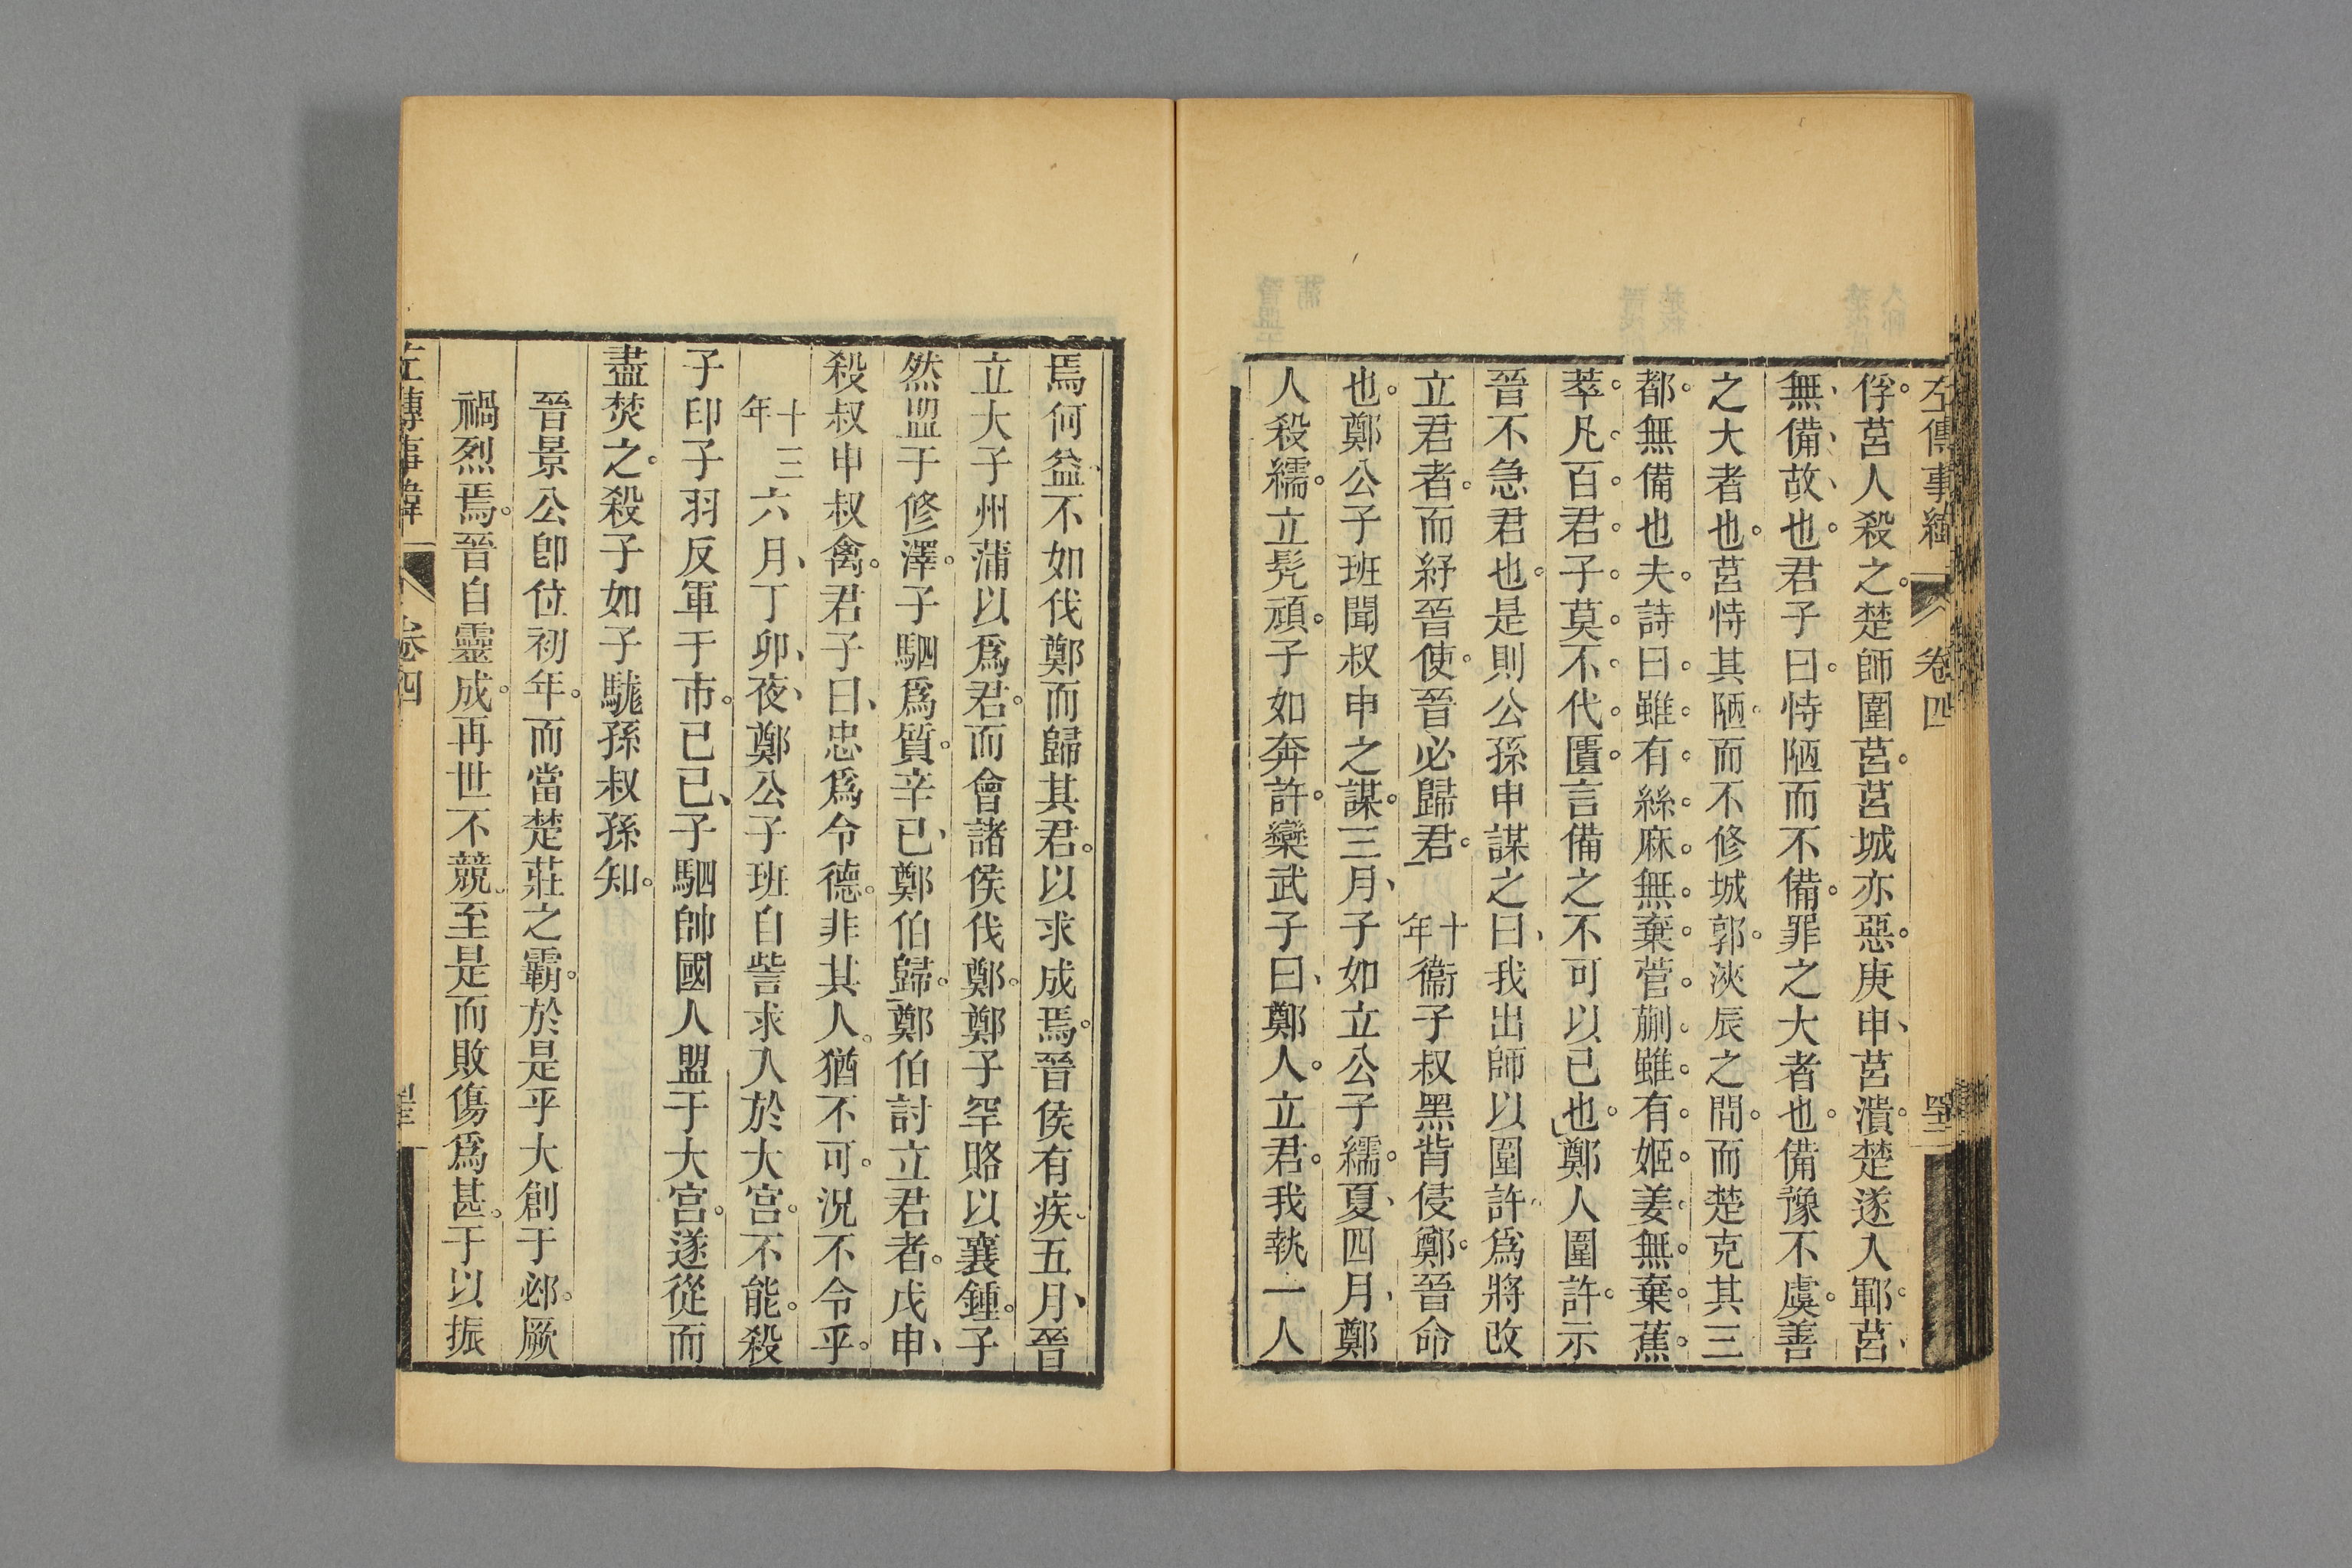 左傳事緯 卷四
俘莒人殺之楚師圍莒莒城亦惡庚申莒潰楚遂入鄆莒
無備故也君子曰恃陋而不備罪之大者也備豫不虞善
之大者也莒恃其陋而不修城郭浹辰之間而楚克其三
都無備也夫詩曰雖有絲麻無棄菅蒯雖有姬姜無棄蕉
萃凡百君子莫不代匱言備之不可以已也鄭人圍許示
晉不急君也是則公孫申謀之曰我出師以圍許爲將改
立君者而紓晉使晉必歸君十年衞子叔黑背侵鄭晉命
也鄭公子班聞叔申之謀三月子如立公子繻夏四月鄭
人殺繻立髠頑子如奔許欒武子曰鄭人立君我執一人
焉何益不如伐鄭而歸其君以求成焉晉侯有疾五月晉
立大子州蒲以爲君而會諸侯伐鄭鄭子罕賂以襄鍾子
然盟于修澤子駟爲質辛巳鄭伯歸鄭伯討立君者戊申
殺叔申叔禽君子曰忠爲令德非其人猶不可況不令乎
十三年六月丁卯夜鄭公子班自訾求入於大宮不能殺
子印子羽反軍于市己巳子駟帥國人盟于大宮遂從而
盡焚之殺子如子駹孫叔孫知
晉景公卽位初年而當楚莊之霸於是乎大創于邲厥
禍烈焉晉自靈成再世不競至是而敗傷爲甚于以振
左傳事緯 卷四